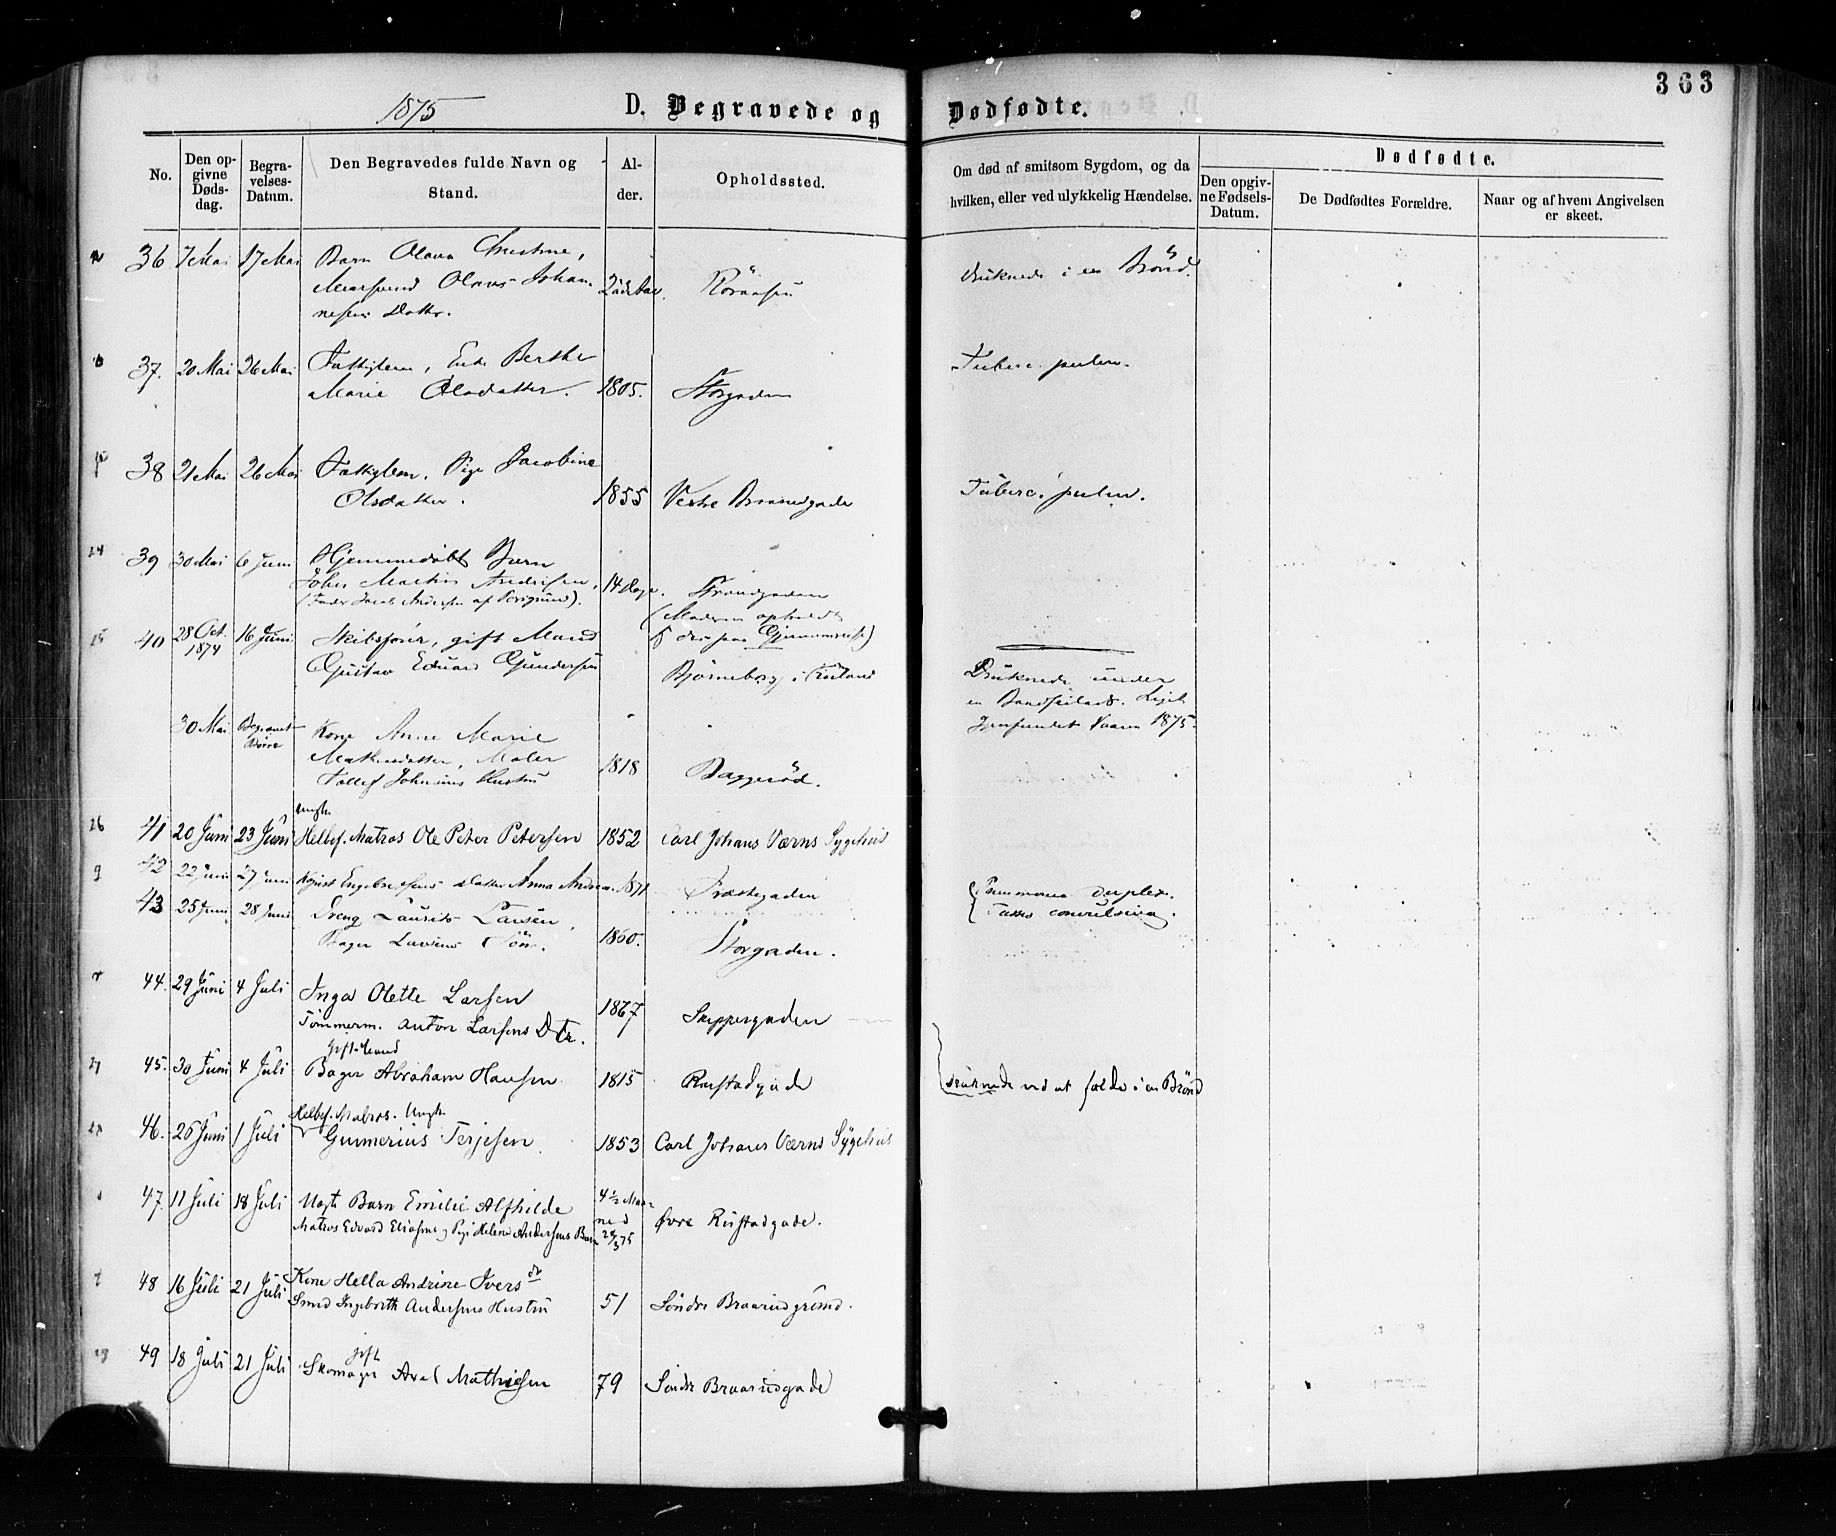 363
1875
D. Begravede og Dødfødte.
No.
Den opgivne Dødsdag.
Begravelses-Datum.
Den Begravedes fulde Navn og Stand.
Alder.
Opholdssted.
Om død af smitsom Sygdom, og da hvilken, eller ved ulykkelig Hændelse.
Dødfødte.
Den opgivne Fødsels-Datum.
De Dødfødtes Forældre.
Naar og af hvem Angivelsen er skeet.
36 7 Mai 17 Mai Barn Olava Christine,
Olaus Johan-
nesens Datter.
druknede i en Brönd.
37. 20 Mai 26 Mai Fattiglem, Enke Berthe
Marie Olsdatter. 1805. Storgaden
Tuberc. pulm.
38 21 Mai 26 Mai Fattiglem, Pige Jacobine
Olsdatter. 1855 Vestre Braarudgade
Tuberc. pulm.
39 30 Mai 6 Juni Hjemmedöbt Barn
Johan Martin Andersen, 14 Dage. Strandgaden
(Fader Jacob Andersen af Porsgrund).
(Moderen opholdt
sig der paa Gjennemreise)
40 28 Oct. 1874 16 Juni Skibsförer, gift Mand
Gustav Eduard Gundersen Björneborg i Finland
Druknede under
en Baadseilads. Liget
gjenfundet Vaaren 1875.
30 Mai Begravet Borre Kone Anne Marie
Mathisdatter, Maler
Tollef Johnsens Hustru 1818 Baggeröd.
41 20 Juni 23 Juni Ungk.
Helbef. Matros Ole Peter Petersen 1852 Carl Johans Værns Sygehus
42 22 Juni 27 Juni Engebretsens Datter Anna Andrea. 1871 Træskegaden
Pneumonia duplex.
Tussis convulsiva.
43 25 Juni 28 Juni Dreng Laurits Larsen,
Bager Larsens Sön. 1860. Storgaden.
44. 29 Juni 4 Juli Inga Olette Larsen
Tömmerm. Anton Larsens Dtr. 1867 Skippergaden
45. 30 Juni 4 Juli gift Mand
Bager Abraham Hansen 1815 Rustadgade
druknede ved at falde i en Brönd
46. 26 Juni 1 Juli Helbef. Matros. Ungk.
Gunnerius Terjesen 1853 Carl Johans Værns Sygehus
47. 11 Juli 18 Juli Uægte Barn Emilie Alfhilde
Matros Edvard Eliasens og Pige Helene Andersens Barn
4½ Maaned
Øvre Rustadgade.
48 16 Juli 21 Juli Kone Hella Andrine Iversdr
Smed Ingebreth Andersens Hustru 51 Söndre Braarudgrund.
49 18 Juli 21 Juli gift
Skomager Axel Mathisen 79 Söndre Braarudgade